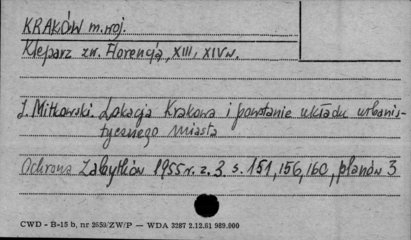 KRAKÓW m. woj.
Kleparz zw. Florencją, XIII, XIV w.
J. Mitkowski. Lokacja Krakowa i powstanie układu urbanis-
tycznego miasta
Ochrona Zabytków 1955 r. z. 3 s. 151, 156, 160, planów 3
CWD - B-15 b, nr 2659/ZW/P — WDA 3287 2.12.61 989.000